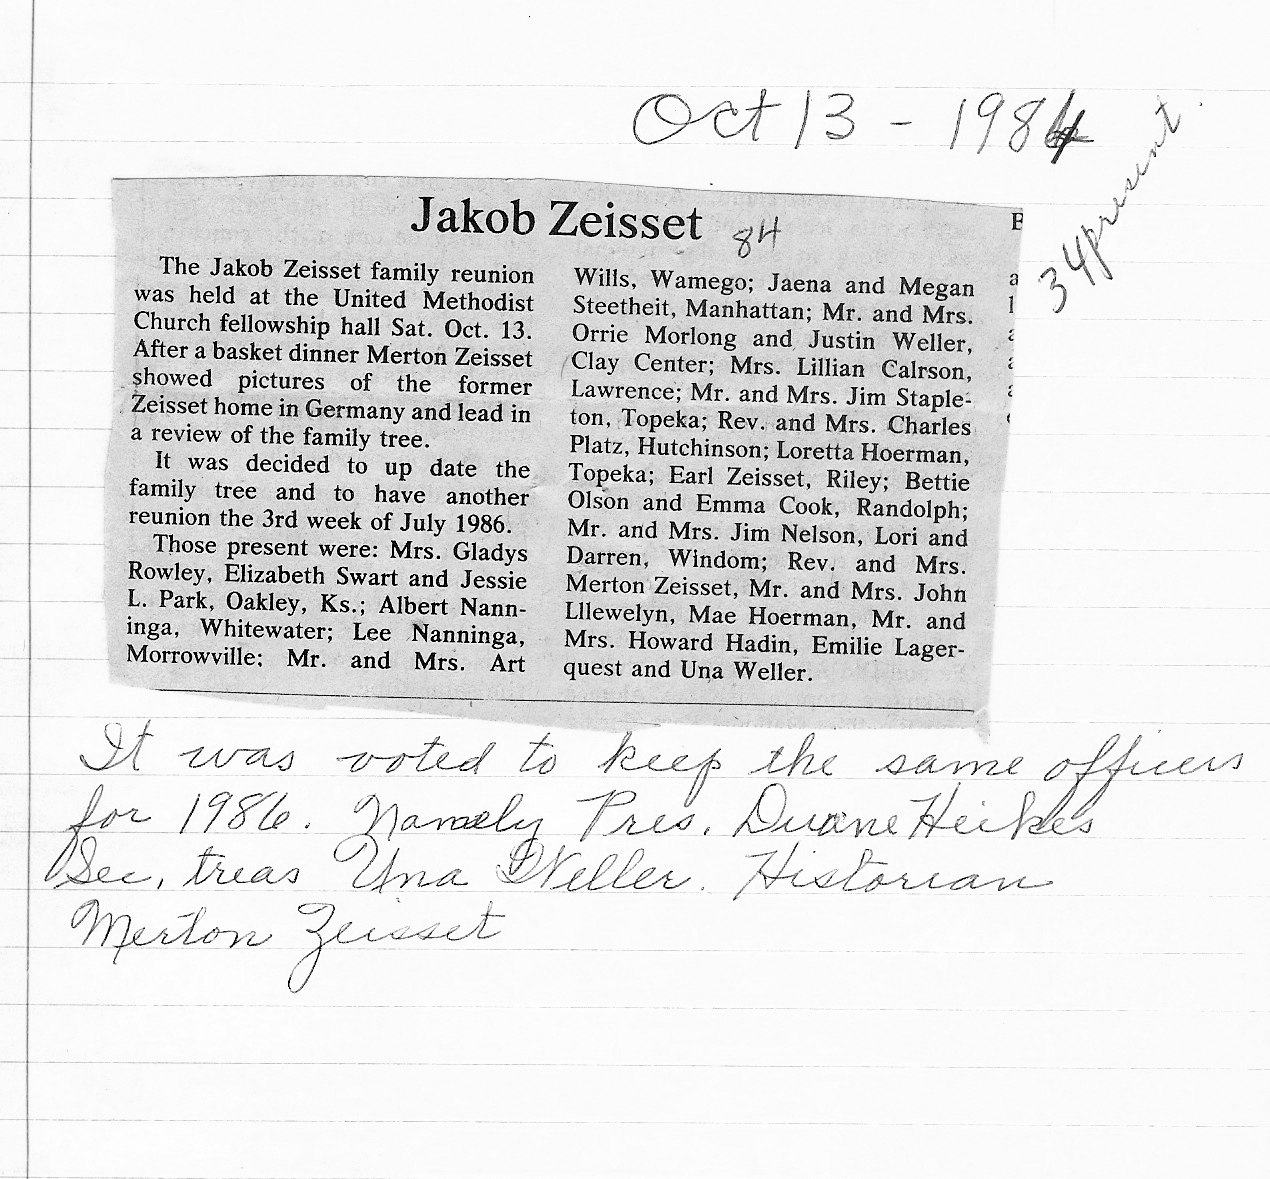 Oct 13 - 1984
34 present
Jakob Zeisset 84
The Jakob Zeisset family reunion
was held at the United Methodist
Church fellowship hall Sat. Oct. 13.
After a basket dinner Merton Zeisset
showed pictures of the former
Zeisset home in Germany and lead in
a review of the family tree.
It was decided to up date the
family tree and to have another
reunion the 3rd week of July 1986.
Those present were: Mrs. Gladys
Rowley, Elizabeth Swart and Jessie
L. Park, Oakley, Ks.; Albert Nann-
inga, Whitewater; Lee Nanninga,
Morrowville; Mr. and Mrs. Art
Wills, Wamego; Jaena and Megan
Steetheit, Manhattan; Mr. and Mrs.
Orrie Morlong and Justin Weller,
Clay Center; Mrs. Lillian Calrson,
Lawrence; Mr. and Mrs. Jim Staple-
ton, Topeka; Rev. and Mrs. Charles
Platz, Hutchinson; Loretta Hoerman,
Topeka; Earl Zeisset, Riley; Bettie
Olson and Emma Cook, Randolph;
Mr. and Mrs. Jim Nelson, Lori and
Darren, Windom; Rev. and Mrs.
Merton Zeisset, Mr. and Mrs. John
Lllewelyn, Mae Hoerman, Mr. and
Mrs. Howard Hadin, Emilie Lager-
quest and Una Weller.
It was voted to keep the same officers
for 1986. Namely Pres. Duane Heikes
Sec, treas Una Weller. Historian
Merton Zeisset